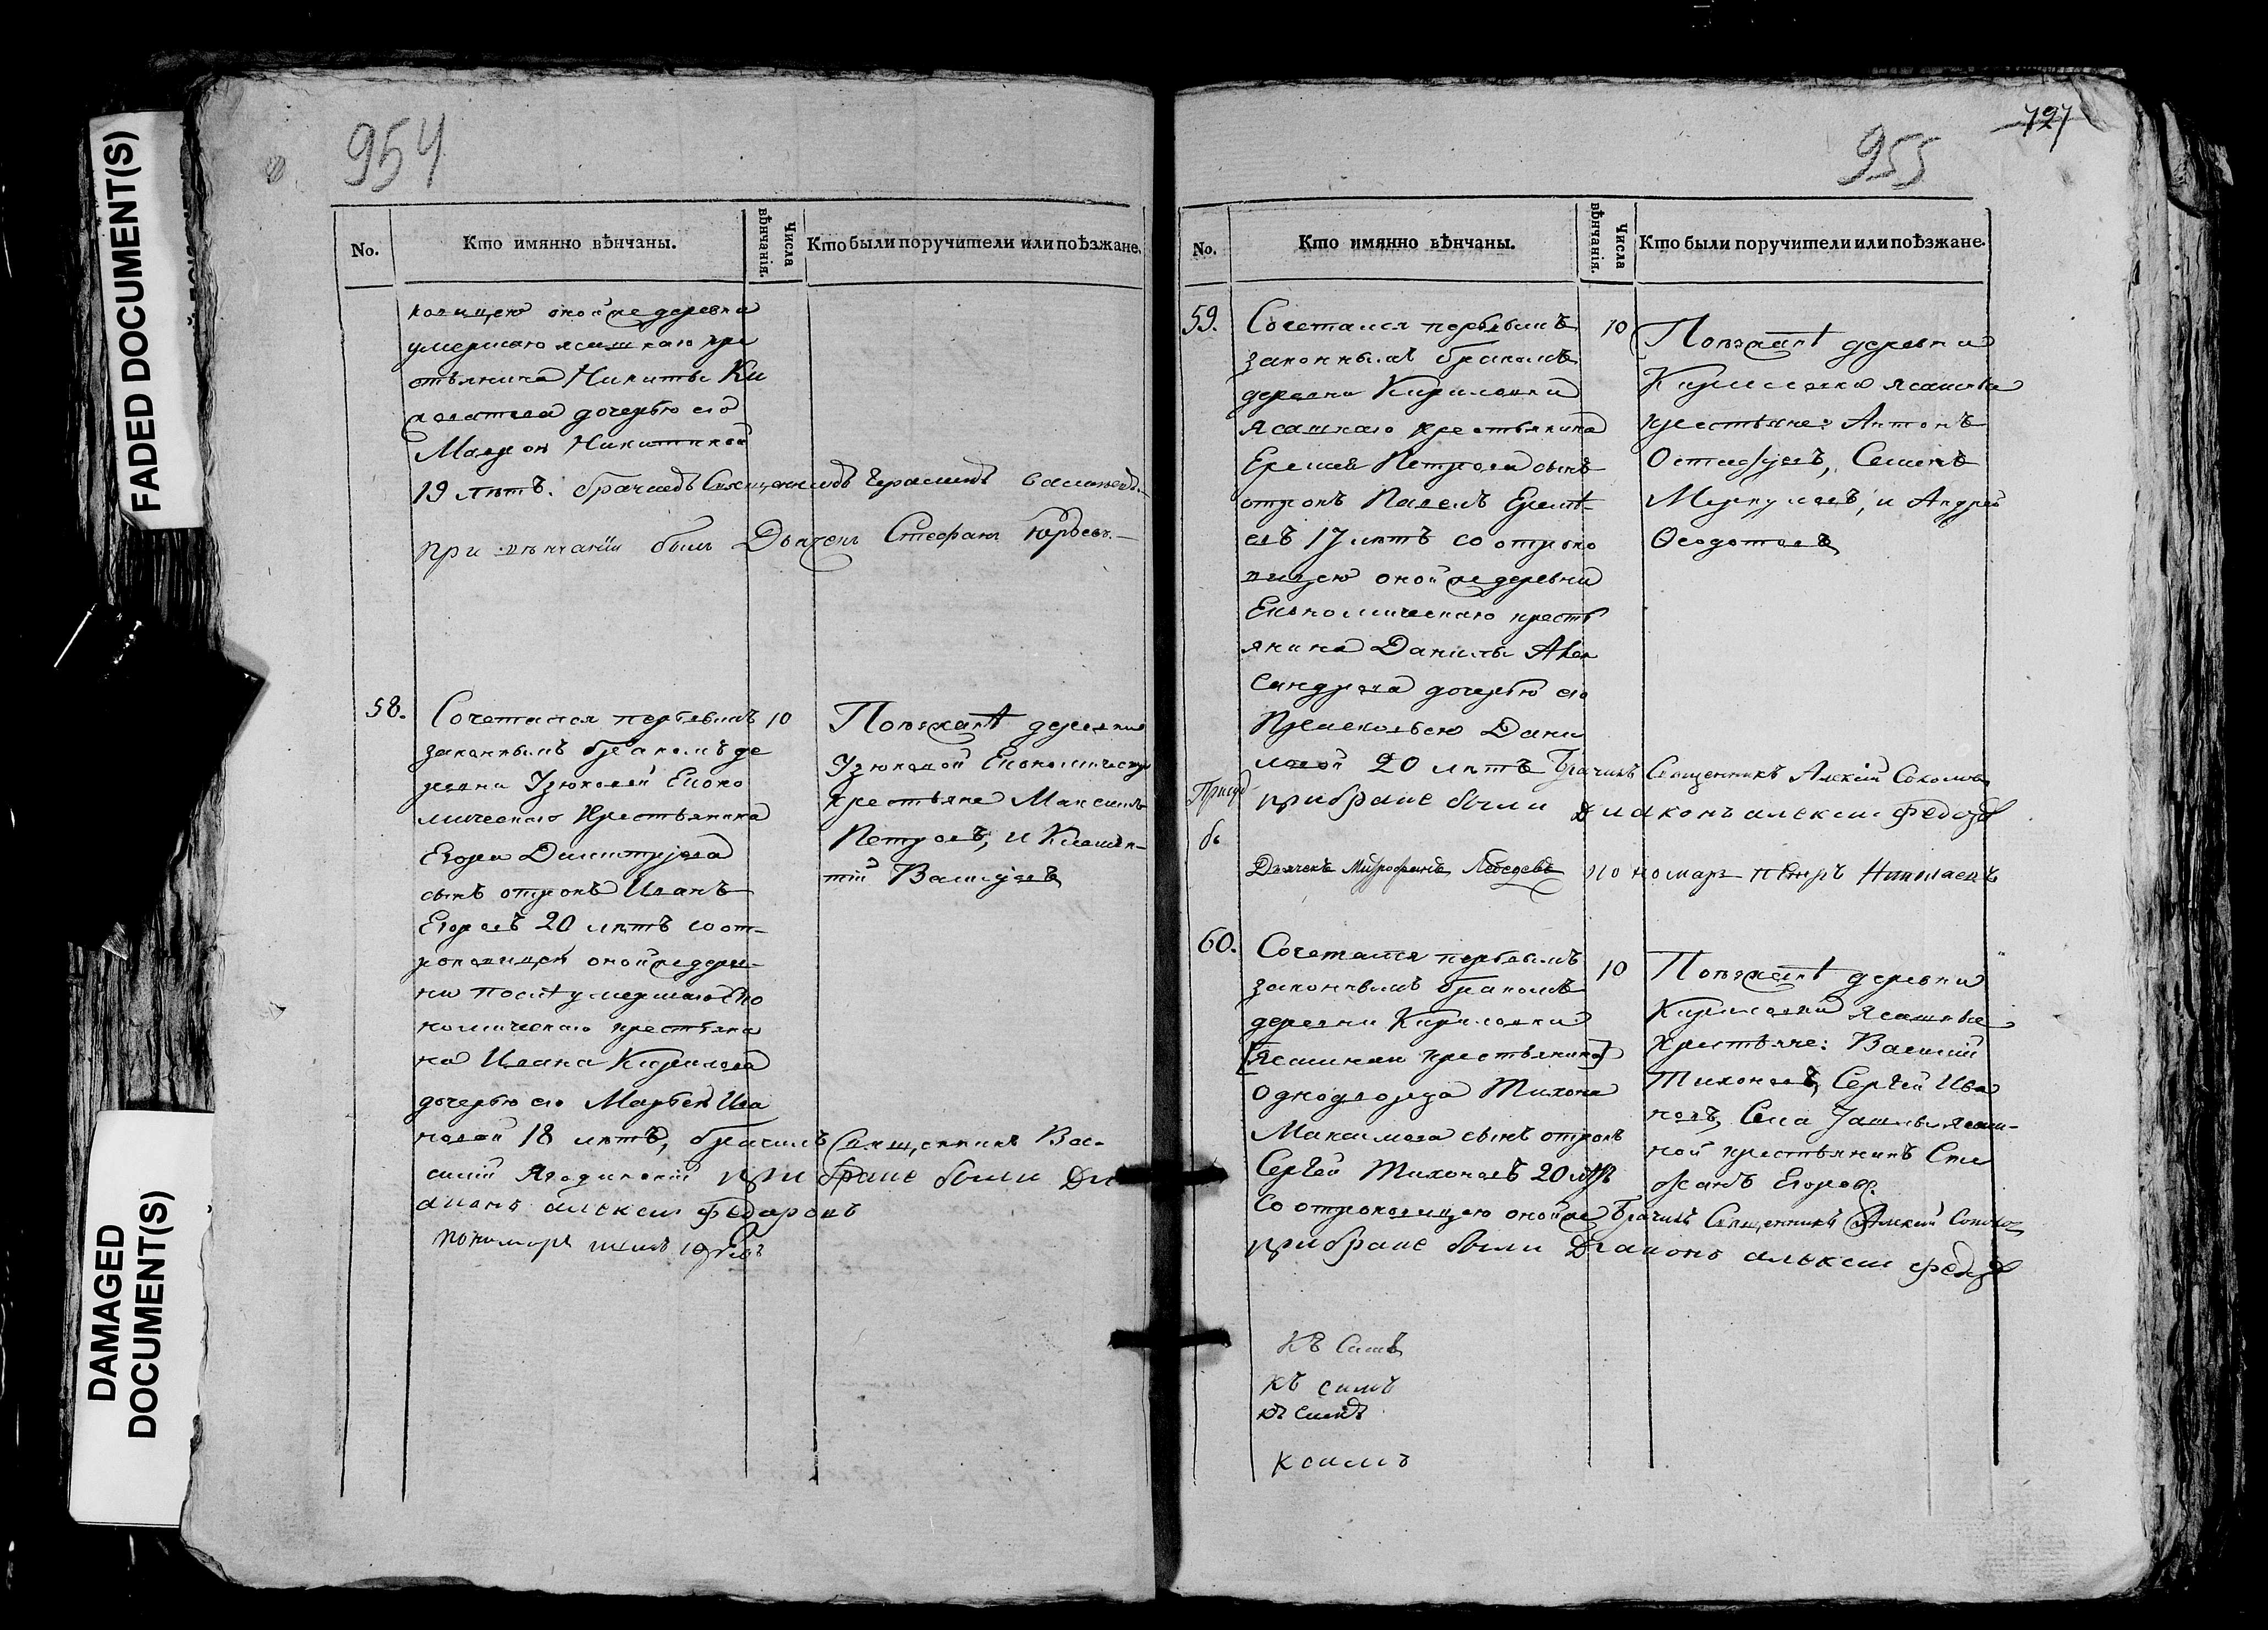 FADED DOCUMENT(S)
DAMAGED
DOCUMENT(S)
954
No.
Кто имянно вѣнчаны.
Числа
вѣнчанія.
Кто были поручители или поѣзжане.
ковицею онойже деревни
умершаго ясашнаго кре
стьянина Никиты Ки
дочерью его
Никитиной
19 лѣтъ. брачилъ Священникъ Герасимъ
при вѣнчаніи былъ Дьячекъ Стефанъ Юрьевъ.
58.
Сочетался первымъ
законнымъ бракомъ де
ревни Узюковой Еконо
мическаго Крестьянина
Егора Димитріева
сынъ отрокъ Иванъ
Егоровъ 20 лѣтъ со от-
роковицей онойже дерев-
ни послѣ умершаго Еко
номическаго крестьяни
на Ивана Кирилова
дочерью его Марьей Ива
новой 18 лѣтъ, брачилъ Священникъ Ва-
силій Ягодинскій при браке были Ди
аконъ алексеи Федаровъ
пономарь
10
Поѣзжанѣ деревни
Узюковой Економическ
крестьяне Максимъ
Петровъ, и Клемен-
тій
727
955
No.
Кто имянно вѣнчаны.
Числа
вѣнчанія.
Кто были поручители или поѣзжане.
59.
Сочетался первымъ
законнымъ бракомъ
деревни Кириловки
Ясашнаго крестьянина
Еремея Петрова сынъ
отрокъ Павелъ Еремѣ-
евъ 17 лѣтъ со отроко
вицею онойже деревни
Економическаго кресть
янина Данилы Алек
сандрова дочерью его
Дани
ловой 20 лѣтъ Брачилъ Священникъ Алексій Соколовъ
при браке были диаконъ алексеи Федоровъ
Дьячекъ Митрофанъ Лебедевъ пономарь петръ Николаевъ
10
Поѣзжанѣ деревни
Кириловки Ясашные
крестьяне: Антонъ
Семенъ
Меркуловъ, и Андрей
Ѳеодотовъ
60.
Сочетался первымъ
законнымъ бракомъ
деревни Кириловки
[Ясашнаго крестьянина]
Однодворца Тихона
Максимова сынъ отрокъ
Сергей Тихоновъ 20 лѣтъ
Со отроковицею онойже Брачилъ Священникъ Алексій Соколовъ
при браке были Диаконъ алексеи федоровъ
10
Поѣзжанѣ деревни
Кириловки Ясашные
Крестьяне: Василій
Тихоновъ, Сергей Ива
новъ, Села Ташлы ясаш-
ной крестьянинъ Сте
фанъ Егоровъ.
Къ Симъ
къ симъ
къ симъ
ксимъ